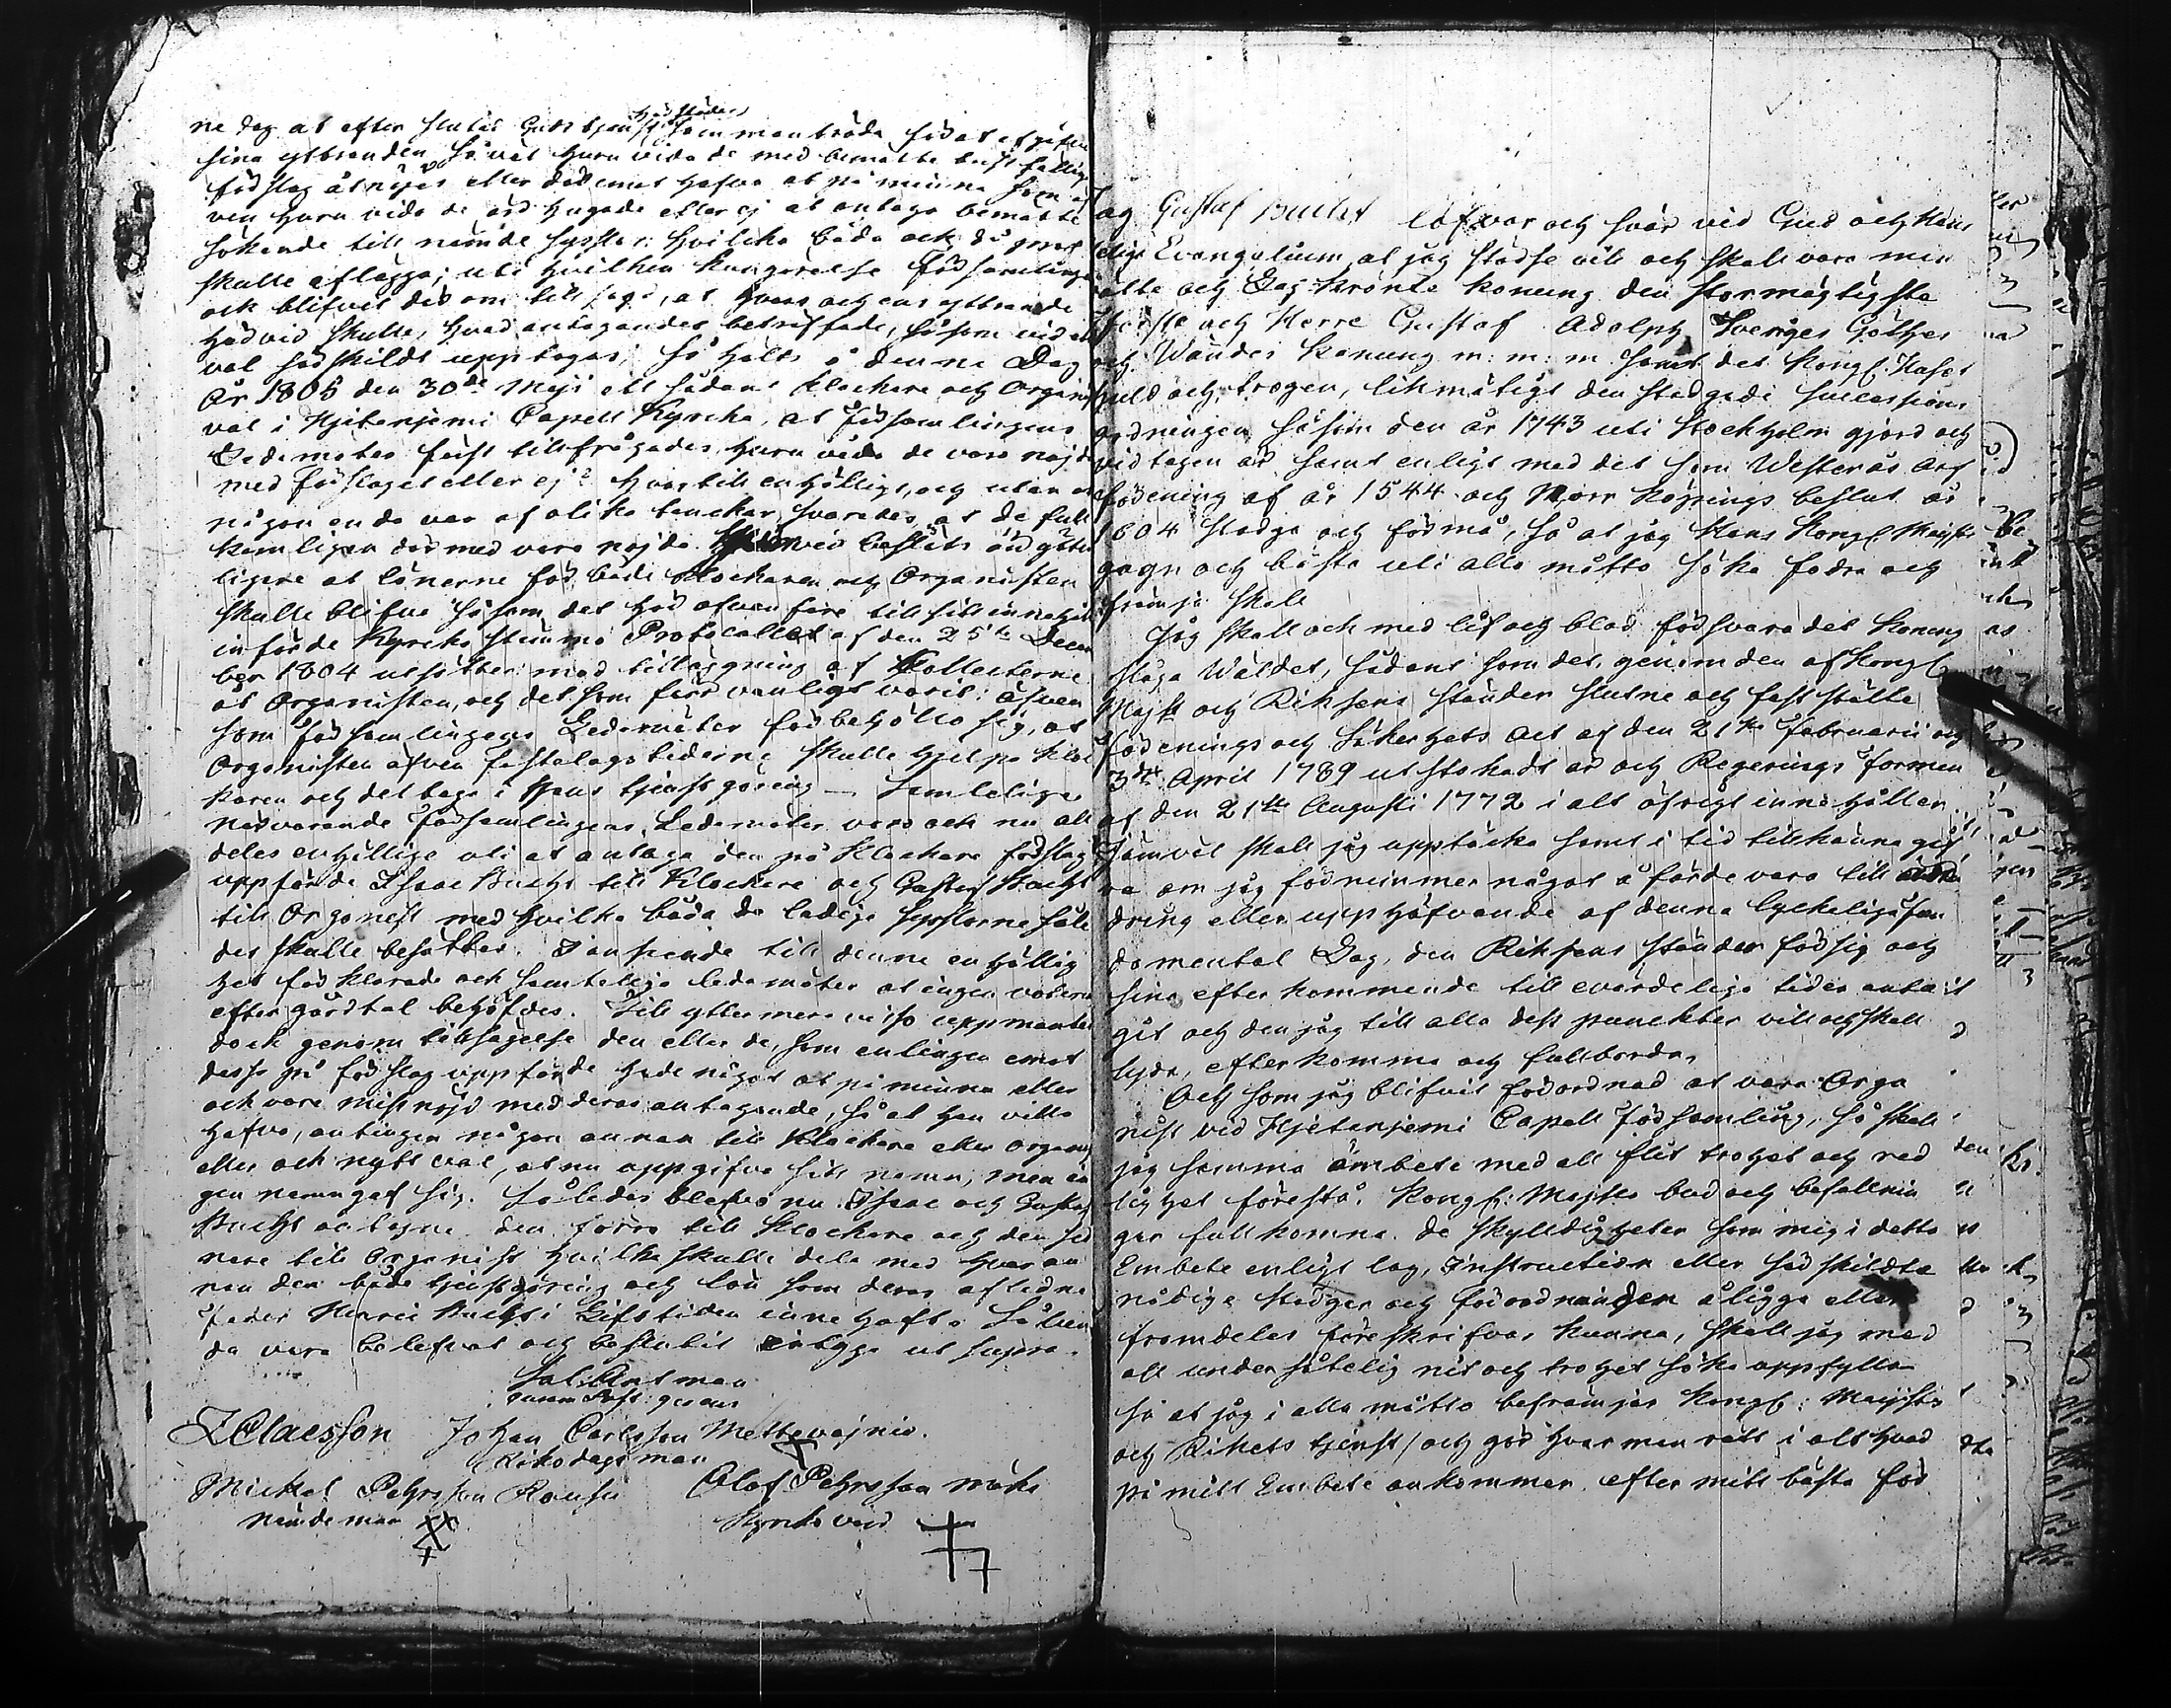 härstädes
ne dag at efter slutad Gudstjenst sammanträda för at afgifva
sina yttranden så väl huru vida de med bemälte
förslag åtnöjas eller där emot hafva at påminna som äf
ven huru vida de äro hugade eller ej at antaga bemälte
sökande till nämde sysslor: hvilka båda ock då prof
skulle aflägga; uti hvilken kungörelse församlingen
ock blifvit der om till sagd, at hvars och ens yttrande
härvid skulle, hvad antagandet beträffade, såsom vid et
val särskildt upptagas; så hölts å denne Dag
År 1805 den 30de Maji ett sådant Klockare och Organist
val i Hjitanjemi Capell Kyrcka, at Församlingens
Ledamöter först tillfrågades, huru vida de voro nöjde
med förslaget eller ej? hvartill enhälligt, och utan at
någon enda var af olika tanckar svarades at de full
komligen der med voro nöjde. Härvid beslöts än yttre
ligare at lönerne för både Klockaren och Organisten
skulle blifva såsom det här ofvanföre till sitt innehåll
införde Kyrcko stämmo Protocollet af den 25te Decem
ber 1804 utsätter med tilläggning af Collecterne
åt Organisten, och det som förr vanligt varit: äfven
som Församlingens Ledamöter förbehöllo sig, at
Organisten äfven fastlags tiderne skulle hjelpa Kloc
karen och deltaga i hans tjenstgöring — Samtelige
närvarande Församlingens Ledamöter voro ock nu all
deles enhällige uti at antaga den på Klockare förslag
uppförde Isaac Bucht till Klockare och Gustaf Bucht
till Organist med hvilka båda de ledige sysslorne såle
des skulle besättas. I anseende till denne enhällig
het förklarade ock samtelige ledamöter at ingen votering
efter gårdtal behöfdes. Till yttermera visso uppmantes
dock genom tillsägelse den eller de, som antingen emot
desse på förslag uppförde hade något at påminna eller
ock vore missnöjd med deras antagande, så at han ville
hafva, antingen någon annan till Klockare eller organist
eller ock nytt val, at nu uppgifva sitt namn, men in
gen namngaf sig. Således blefvo nu Isaac och Gustaf
Bucht antagne den förra till Klockare och den sed
nare till Organist hvilka skulle dela med hvar an
nan den både tjenstgöring och lön som deras aflidne
Fader Henric Bucht i Lifstiden innehaft. Sålun
da vara belefvat och beslutit intyga ut supra.
Sal: Antman
quum Past: gerens
ZClaesson Johan Carlsson Mettavajnio.
Riksdagsman
Mickel Pehrsson Rousu Olof Pehrsson
nämdeman Kyrko värd
Jag Gustaf Bucht låfvar och svär vid Gud och Hans
helige Evangelium at jag städse vill och skall vara min
rätte och Dag Krönte Konung den stormägtigste
Förste och Herre Gustaf Adolph Sveriges Göthes
och Wändes Konung m: m: m samt det Kongl. Huset
huld och trogen, likmätigt den stadgade Successions
ordningen såsom den år 1743 uti Stockholm gjord och
vidtagen är samt enligt med det som Westerås Arf
förening af år 1544 och Norr Köpings beslut år
1604 stadga och förmå, så at jag Hans Kongl. Majsts
gagn och bästa uti alla måtto söka fodra och
främja skall
Jag skall ock med lif och blod försvara det Konung
sliga Wäldet, sådant som det, genom den af Kongl.
Majst och Riksens Ständer slutne och fastställte
Förenings och Säkerhets Act af den 21te Februarii och
3die April 1789 utstakadt är och Regerings Formen
af den 21te Augusti 1772 i alt öfrigt innehåller
Jämväl skall jag upptäcka samt i tid tillkänna gif
va om jag förnimmer något å färde vara till än
dring eller upphäfvande af denne lyckeliga fun
damental Lag, den Riksens Ständer för sig och
sina efterkommande till evärdeliga tider anta
git och den jag till alla dess punckter vill och skall
lyda, efterkomma och fullborda.
Och som jag blifvit förordnad at vara Orga
nist vid Hjetanjemi Capell Församling, så skall
jag samma ämbete med all flit trohet och red
lighet förestå. Kongl: Majsts bud och befallnin
gar fullkomna. de skylldigheter som mig i detta
Embete enligt lag, Instruction eller särskildta
nådige stadgar och förordningar åligga eller
framdeles föreskrifvas kunna, skall jag med
all undersåtelig nit och trohet söka uppfylla
så at jag i alla måtto befrämjar Kongl: Majsts
och Rikets tjenst och gör hvar man rätt i alt hvad
på mitt Embete ankommer efter mitt bästa för